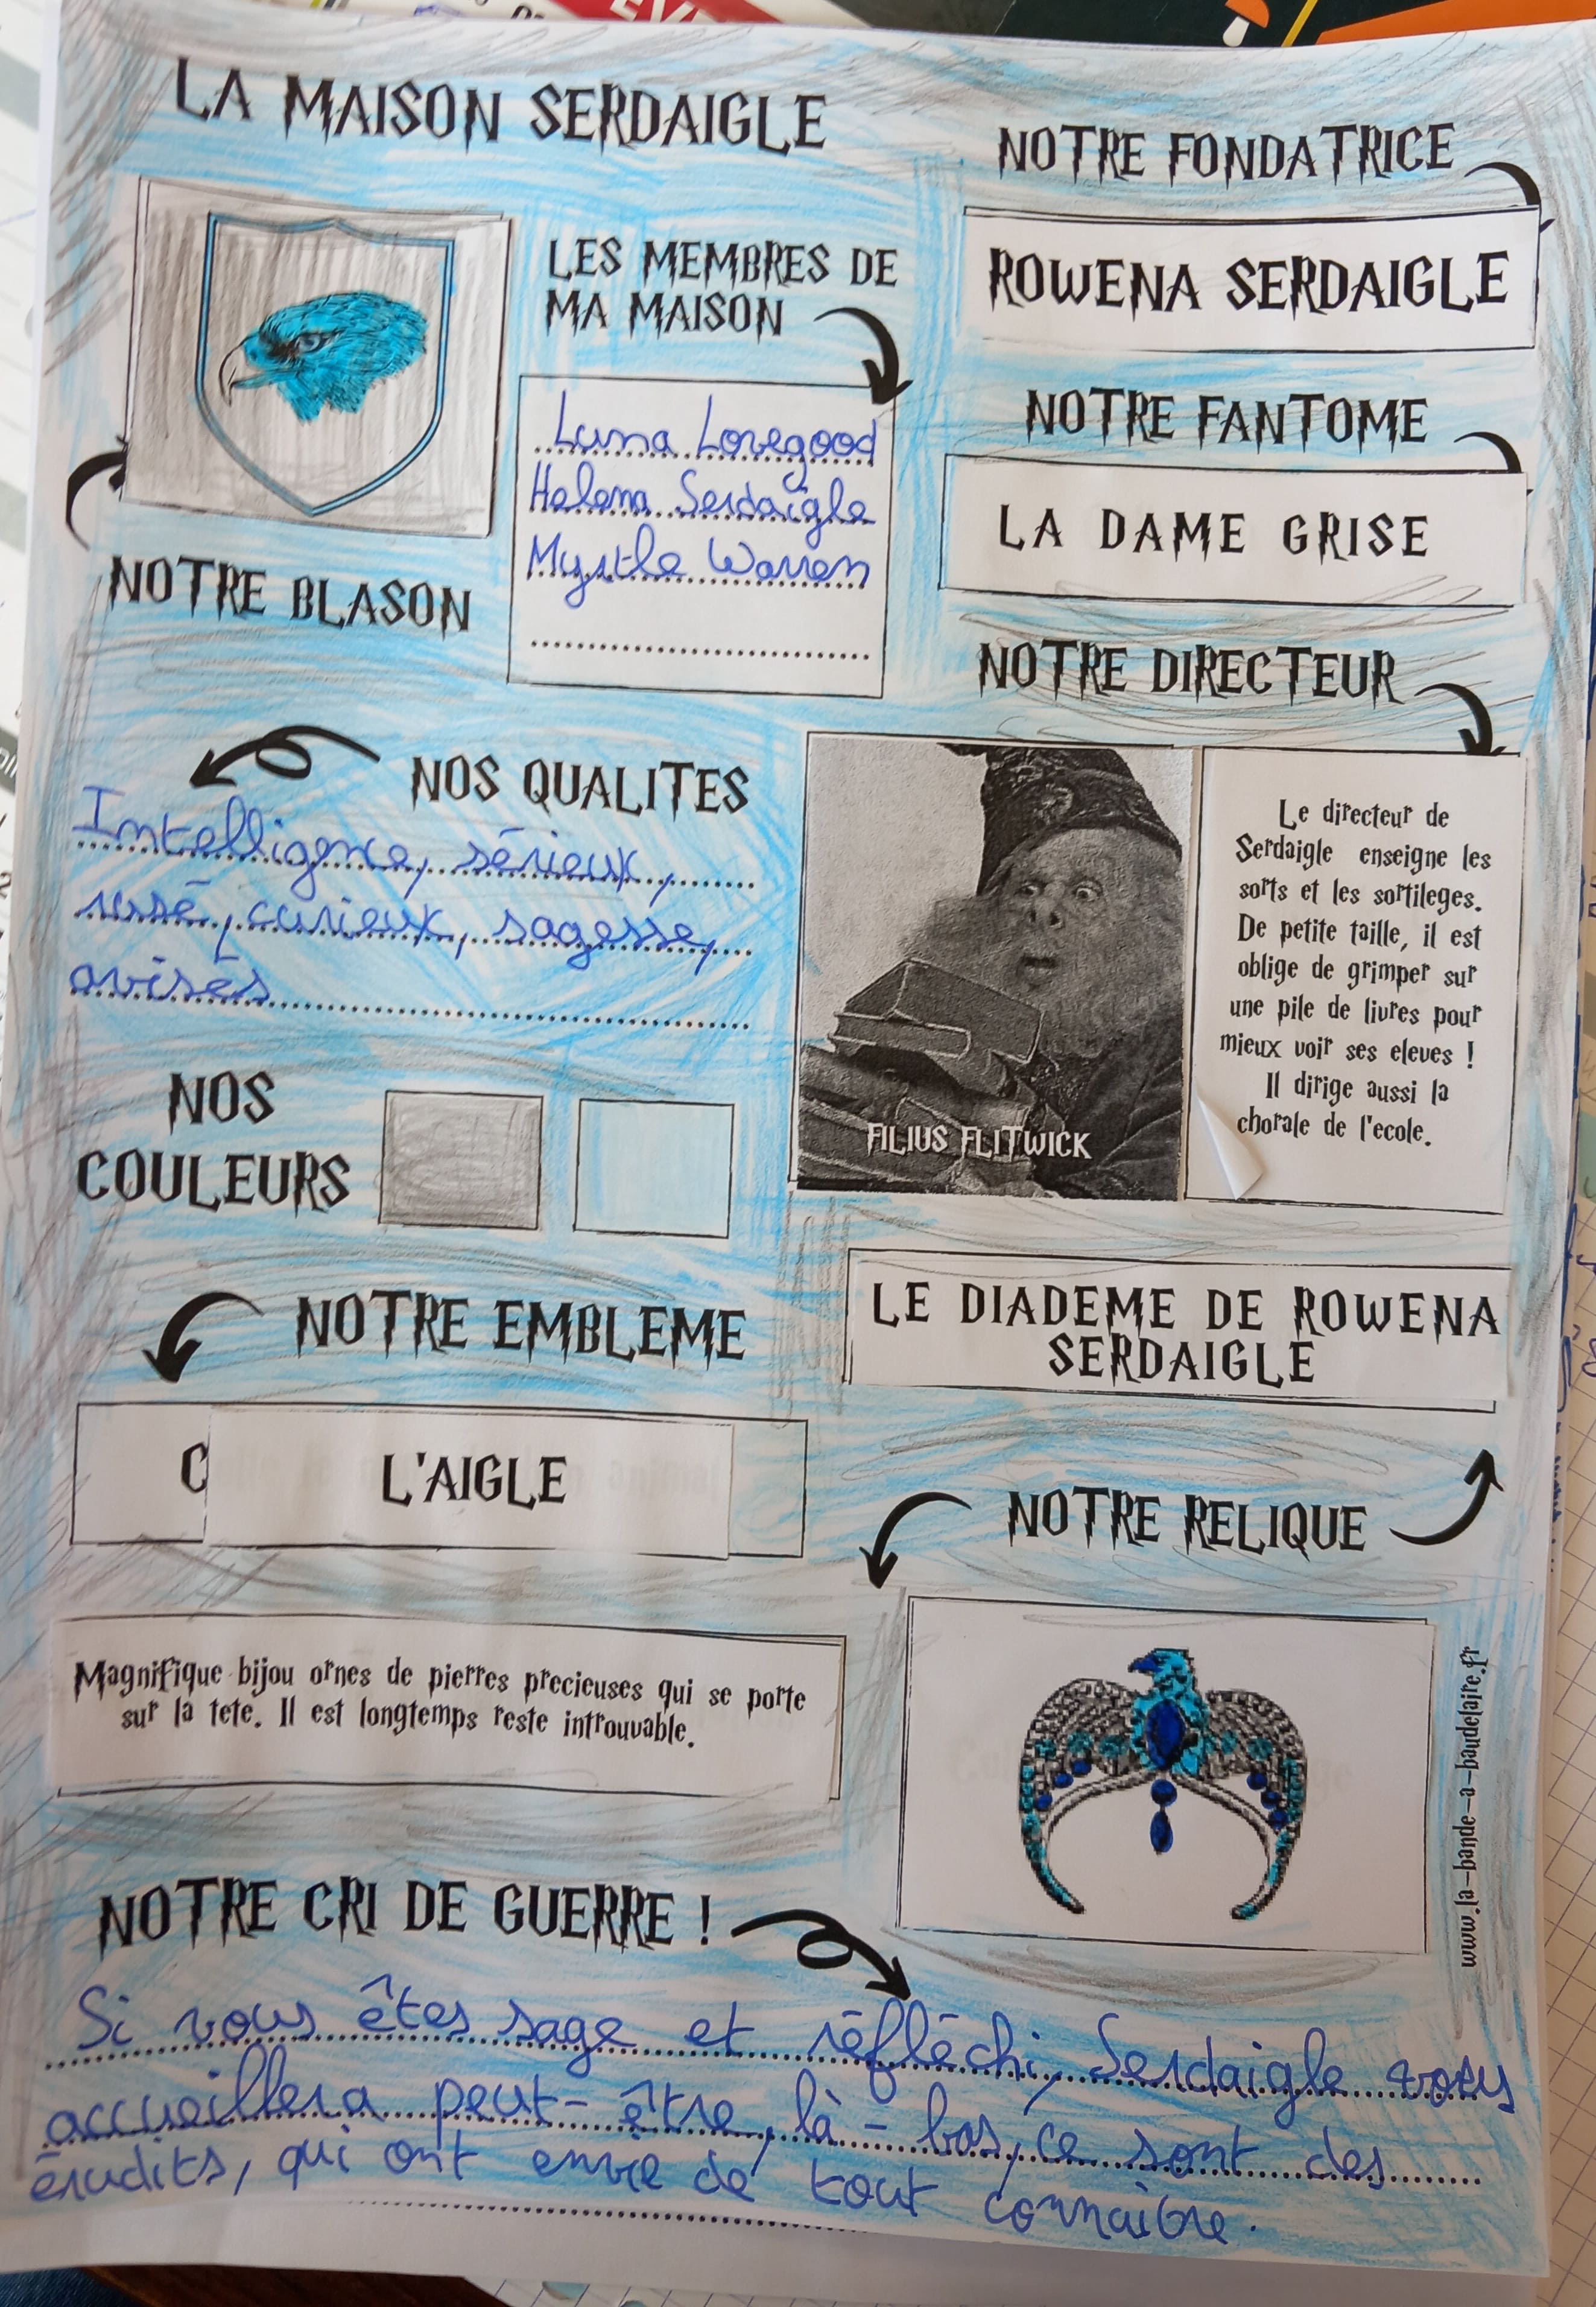 LA MAISON SERDAIGLE
NOTRE BLASON
LES MEMBRES DE
MA MAISON
Luna Lovegood
Helena Serdaigle
Myrtle Warren
NOTRE FONDATRICE
ROWENA SERDAIGLE
NOTRE FANTOME
LA DAME GRISE
NOTRE DIRECTEUR
FILIUS FLITWICK
Le directeur de
Serdaigle enseigne les
sorts et les sortileges.
De petite taille, il est
oblige de grimper sur
une pile de livres pour
mieux voir ses eleves !
Il dirige aussi la
chorale de l'ecole.
NOS QUALITES
Intelligence, sérieux,
rusé, curieux, sagesse,
avisés
NOS
COULEURS
NOTRE EMBLEME
C
L'AIGLE
LE DIADEME DE ROWENA
SERDAIGLE
NOTRE RELIQUE
Magnifique bijou ornes de pierres precieuses qui se porte
sur la tete. Il est longtemps reste introuvable.
www.la-bande-a-baudelaire.fr
NOTRE CRI DE GUERRE !
Si vous êtes sage et réfléchi, Serdaigle vous
accueillera peut-être, là-bas, ce sont des
érudits, qui ont envie de tout connaître.